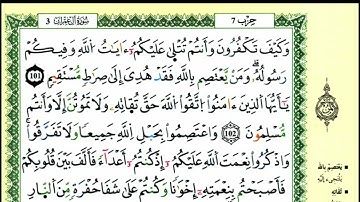 سُورَةُ آلِ عِمْرَان 3
حِزْب 7
وَكَيْفَ تَكْفُرُونَ وَأَنتُمْ تُتْلَىٰ عَلَيْكُمْ ءَايَٰتُ اللَّهِ وَفِيكُمْ
رَسُولُهُۥ وَمَن يَعْتَصِم بِاللَّهِ فَقَدْ هُدِيَ إِلَىٰ صِرَٰطٍ مُّسْتَقِيمٍ 101
يَٰٓأَيُّهَا الَّذِينَ ءَامَنُوا۟ اتَّقُوا۟ اللَّهَ حَقَّ تُقَاتِهِۦ وَلَا تَمُوتُنَّ إِلَّا وَأَنتُم
مُّسْلِمُونَ 102 وَاعْتَصِمُوا۟ بِحَبْلِ اللَّهِ جَمِيعًا وَلَا تَفَرَّقُوا۟
وَاذْكُرُوا۟ نِعْمَتَ اللَّهِ عَلَيْكُمْ إِذْ كُنتُمْ أَعْدَآءً فَأَلَّفَ بَيْنَ قُلُوبِكُمْ
فَأَصْبَحْتُم بِنِعْمَتِهِۦٓ إِخْوَٰنًا وَكُنتُمْ عَلَىٰ شَفَا حُفْرَةٍ مِّنَ النَّارِ
يعتصم بالله